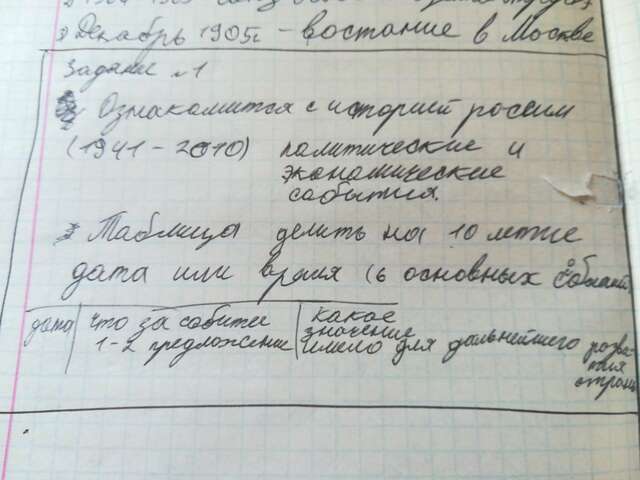 3) Декабрь 1905г - востание в Москве
Задание №1
Ознакомится с историей россии
(1941-2010) политические и
экономические
события.
Таблица делить на 10 летие
дата или время (6 основных событий
дата | что за событие | какое
значение
1-2 предложение | имело для дальнейшего разви-
тия
страны